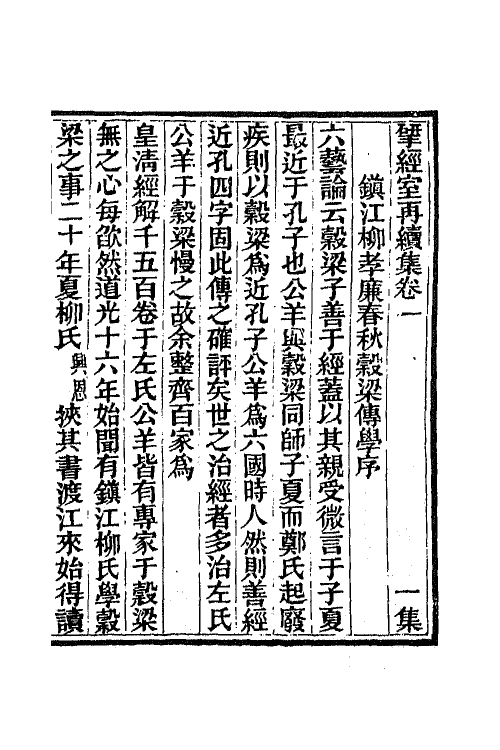 揅經室再續集卷一　一集
鎮江柳孝廉春秋穀梁傳學序
六藝論云穀梁子善于經蓋以其親受微言于子夏
最近于孔子也公羊與穀梁同師子夏而鄭氏起廢
疾則以穀梁爲近孔子公羊爲六國時人然則善經
近孔四字固此傳之確評矣世之治經者多治左氏
公羊于穀梁慢之故余整齊百家爲
皇淸經解千五百卷于左氏公羊皆有專家于穀梁
無之心每欿然道光十六年始聞有鎮江柳氏學穀
梁之事二十年夏柳氏興恩挾其書渡江來始得讀